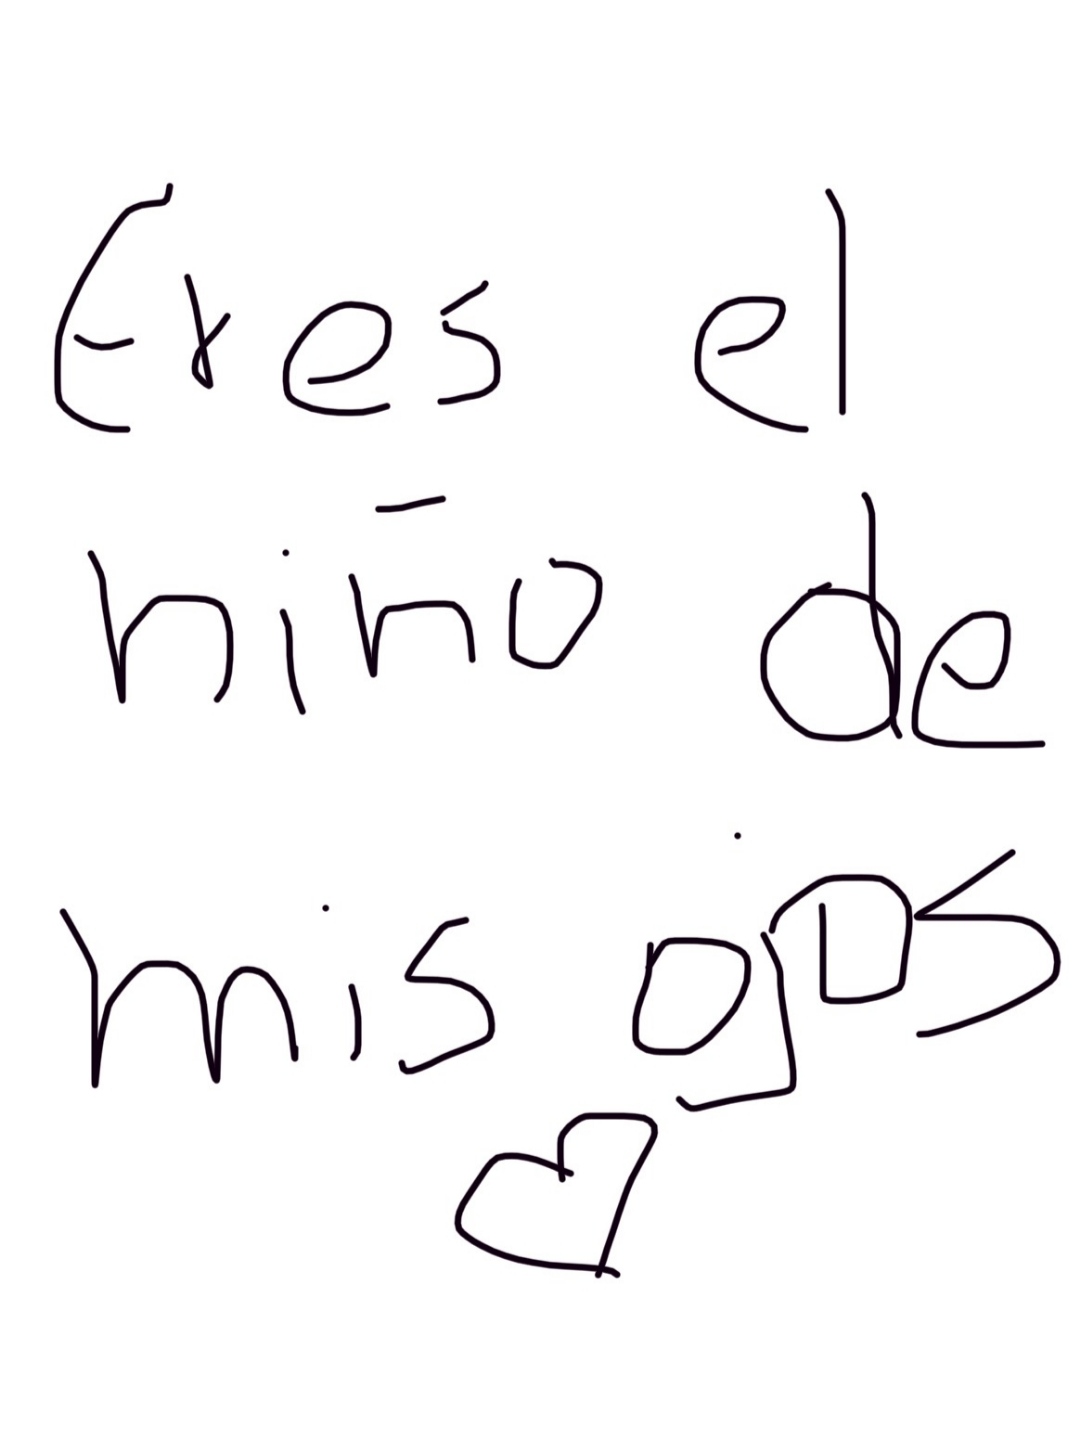 Eres el
niño de
mis ojos